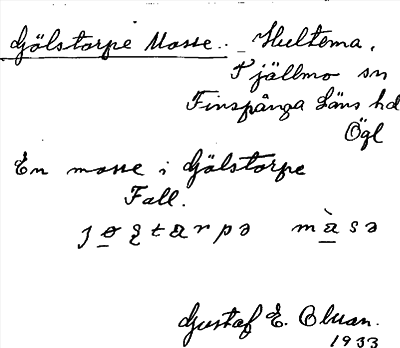 Gölstorpe Mosse.. Hultema,
Tjällmo sn
Finspånga Läns hd
Ögl
En mosse i Gölstorpe
Fall.
Gustaf E.
1933